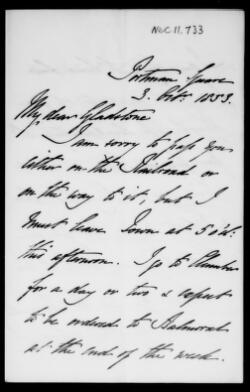 NeC 11,733
Portman Square
3. Oct: 1853.
My dear Gladstone
I am sorry to pass you
either on the Railroad or
on the way to it, but I
must leave Town at 5 o'cl:
this afternoon. I go to Clumber
for a day or two & expect
to be ordered to Balmoral
at the end of the week.